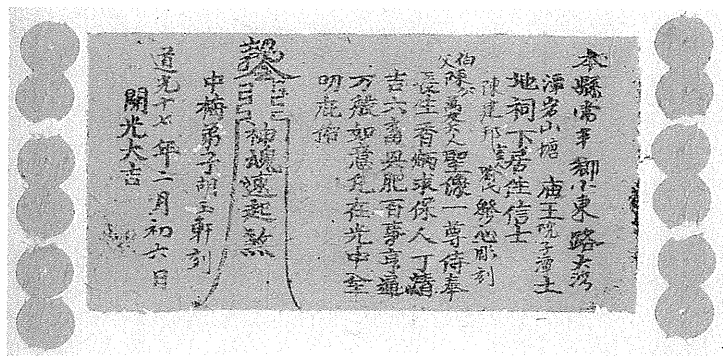 本縣常平鄉小東路大灣
潭岩山塘 廟王院子潭土
地祠下居住信士
陳建邦 發心彫刻
伯父陳 萬 大人聖像一尊侍奉
長生香火 求保人丁清
吉六畜興肥百事亨通
万般如意凡在光中全
叨庇佑
神魂速起煞
中梅弟子胡玉軒刻
道光十七年二月初六日
開光大吉